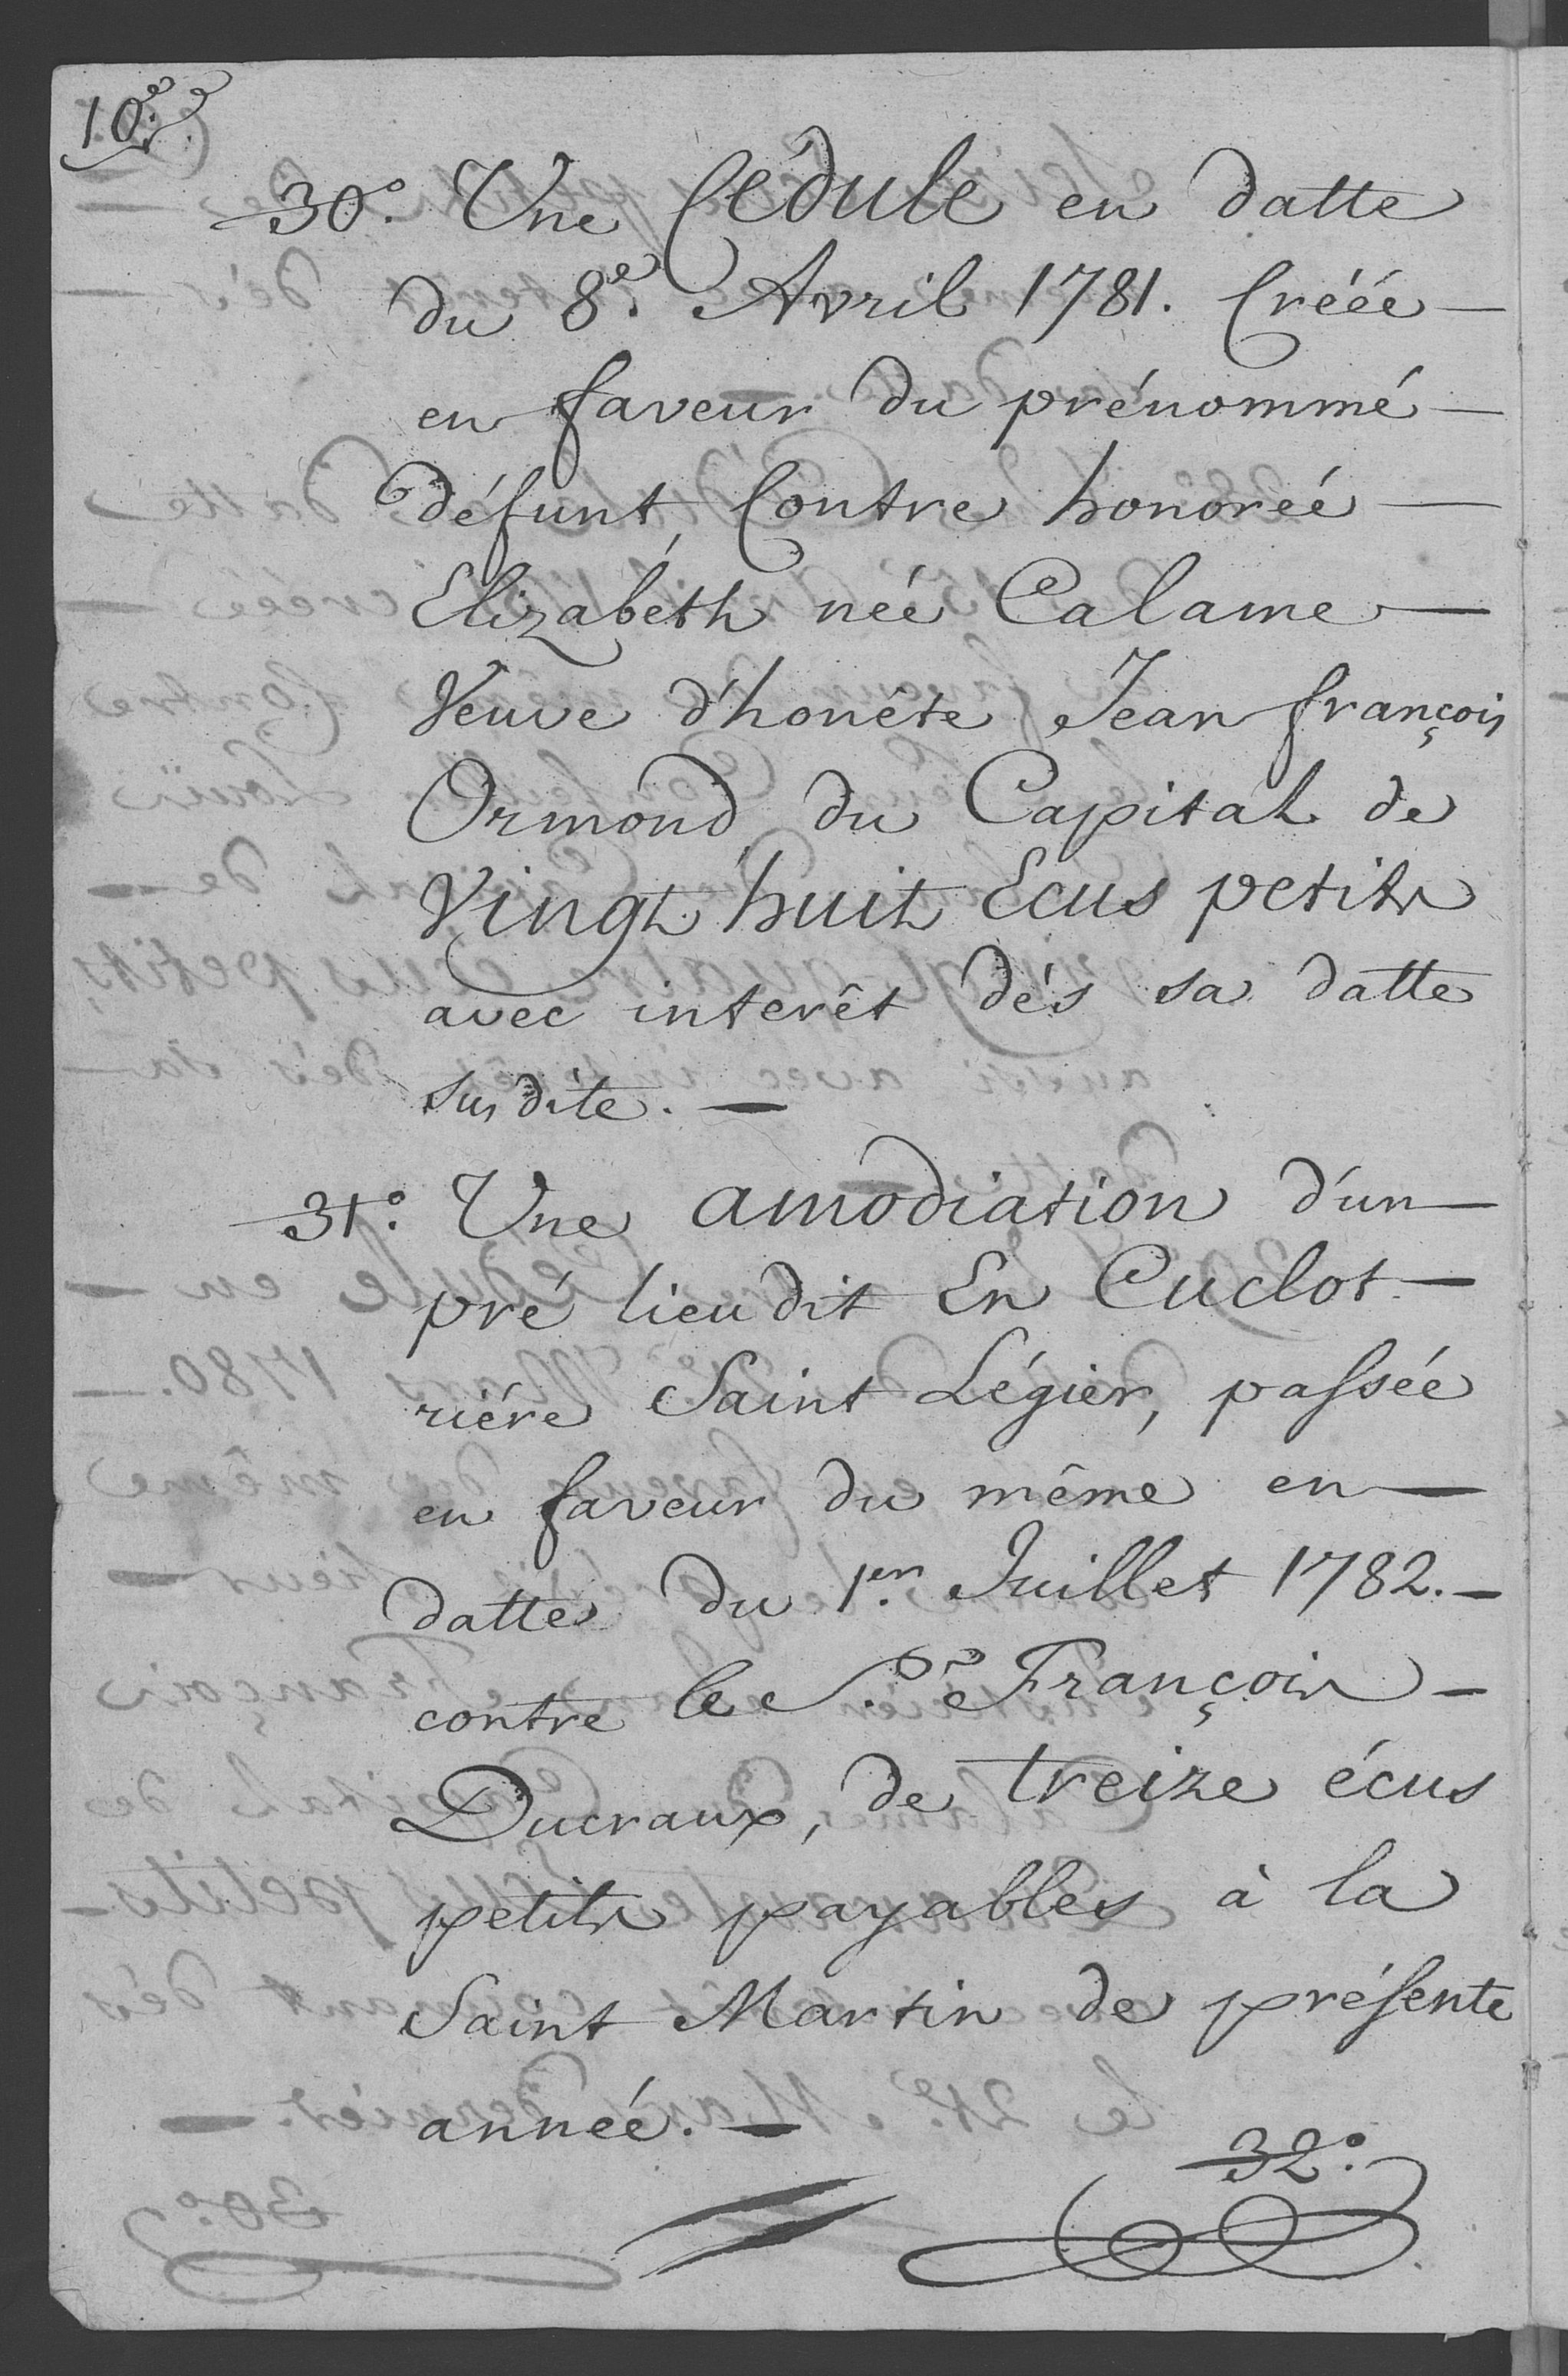 10.e
30.o Une Cédule en datte
du 8.e Avril 1781. Créée —
en faveur du prénommé —
défunt, Contre honoréé —
Elizabéth néé Calame —
Veuve d'honête Jean françois
Ormond, du Capital de
Vingt huit Ecus petits
avec interêt dés sa datte
susdite. —
31.o Une amodiation d'un —
pré lieu dit En Cuclot —
riére Saint Légier, passée
en faveur du même en —
datte du 1.er Juillet 1782. —
contre le S.r François —
Ducraux, de treize écus
petits payables à la
Saint Martin de présente
annéé. —
32.o